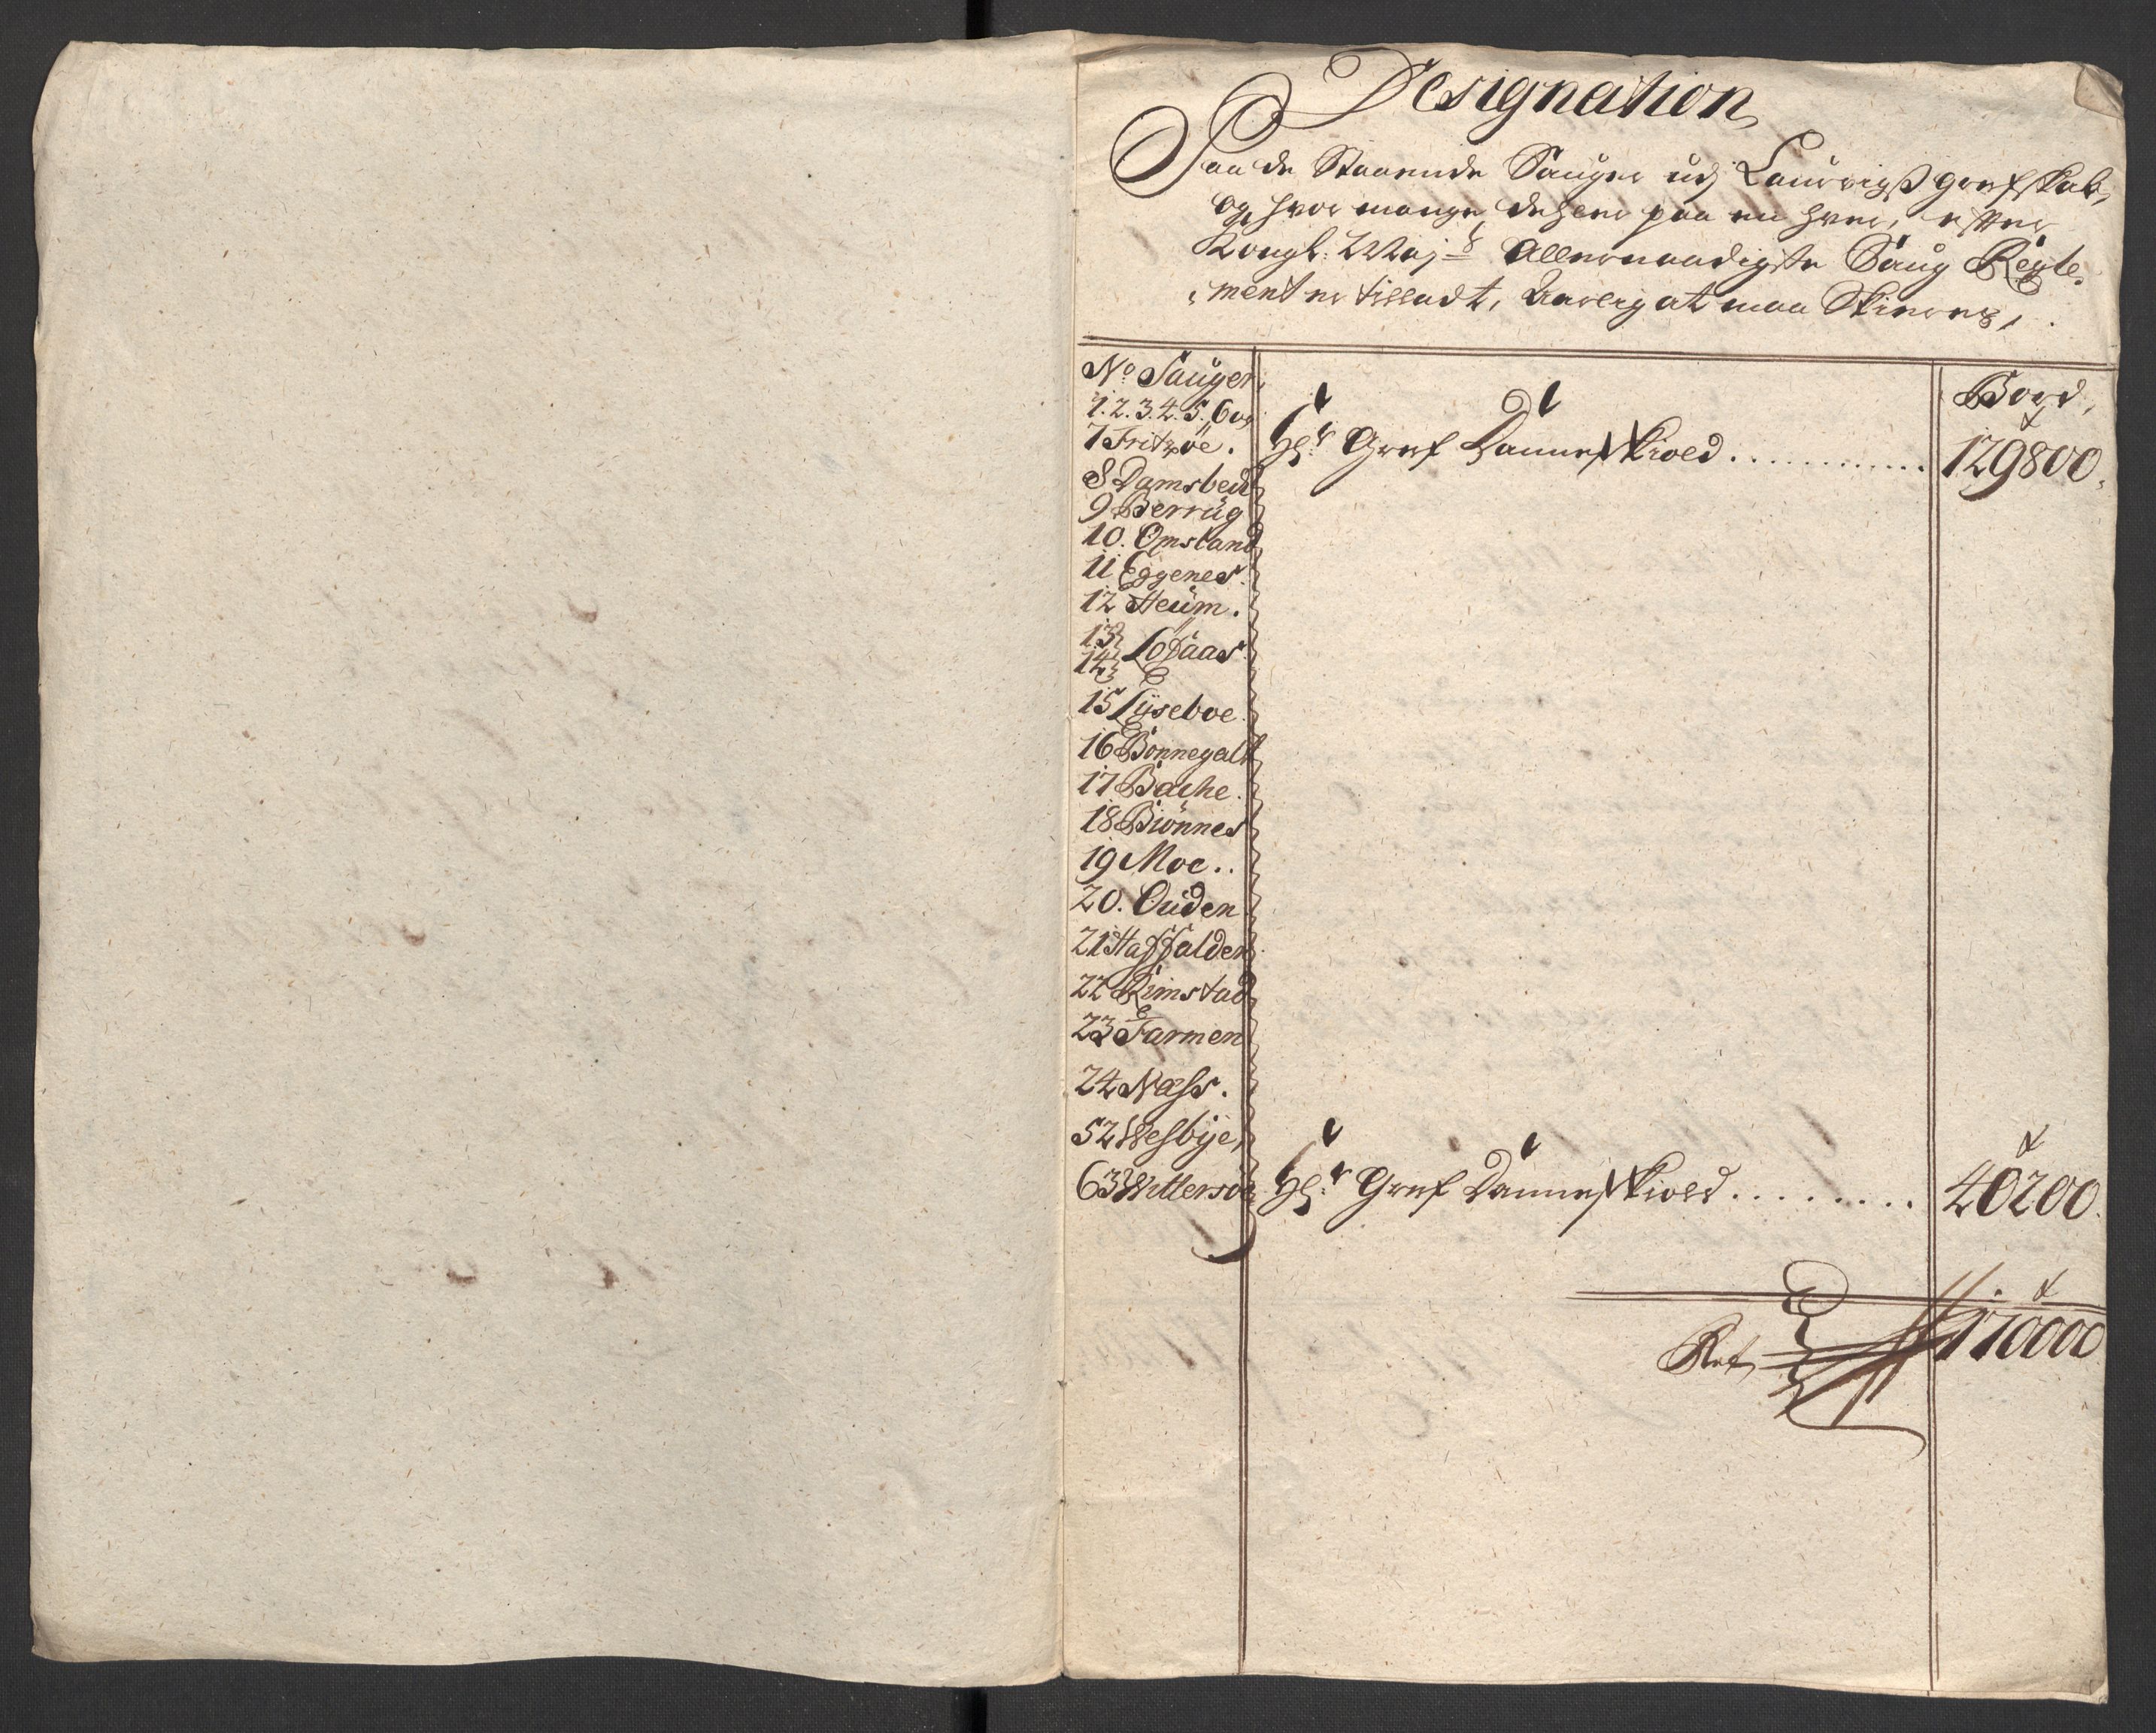 Designation
Paa de Staaende Sauger udj Laurvigß grefskab,
og hvor mange deheler paa en hver, effter
Kongl: Maj:ts Allernaadigste Saug Regle,
,ment er tilladt, Aarlig at maa Skieres,
No Sauger,
Bord,
1. 2. 3. 4. 5. 6 og
7 Fritzöe.
Hr: Gref Danneskiold
129800.
8 Damsbeu
9 Berrug
10. Omsland
11 Eggenes.
12 Heum.
13
14 Aaas
15 Lyseboe.
16 Bonnegalt
17 Bache.
18 Biönnes
19 Moe..
20. Ouden
21 Haffalden
22 Rimstad
23 Farmen
24 Næss.
52 Wesbye,
63 Wittersöe
Hr: Gref Danneskiold
40200.
170000